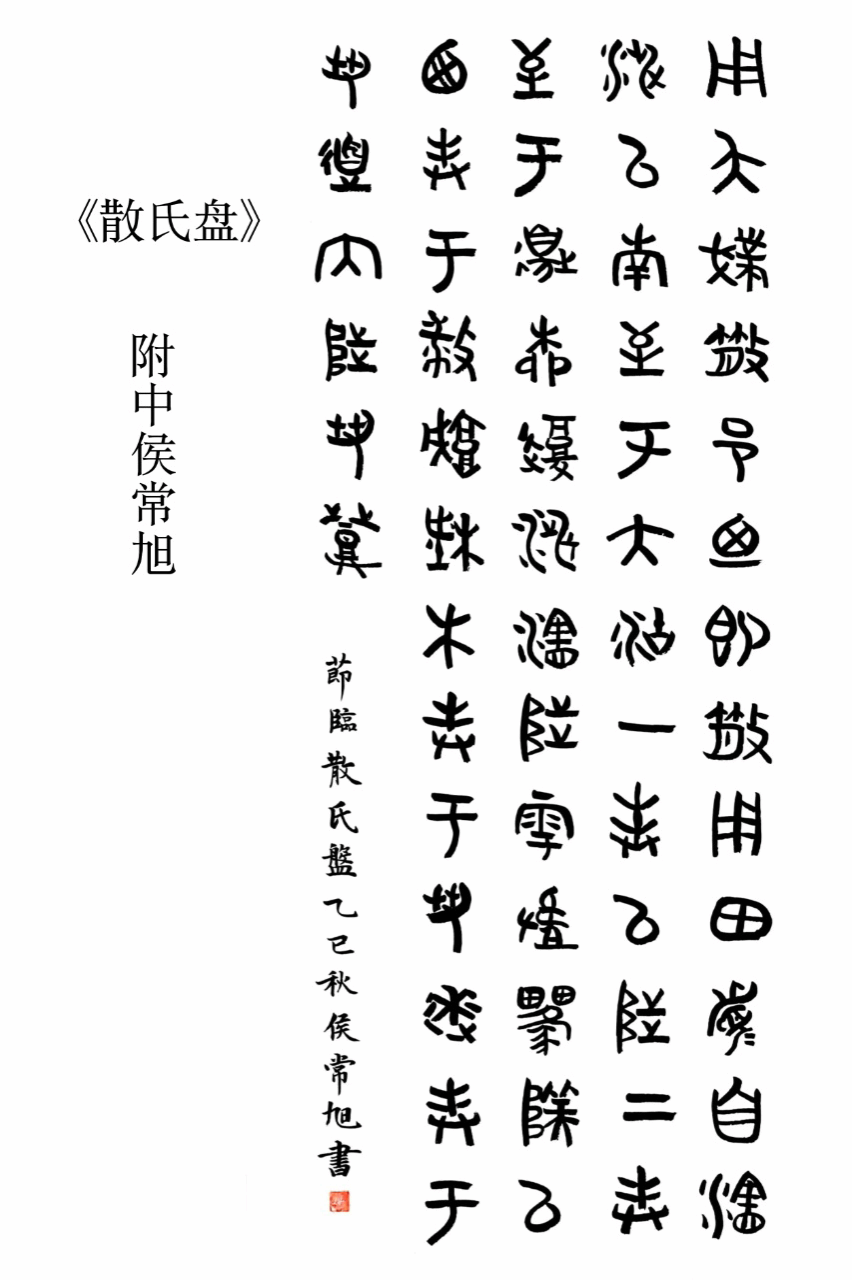 用夨撲散邑廼即散用田眉自瀗
涉以南至于大沽一封以陟二封
至于邊柳復涉瀗陟雩以
西封于播城楮木封于芻逨封于
芻道内陟芻
節臨散氏盤乙巳秋侯常旭書
《散氏盘》
附中侯常旭